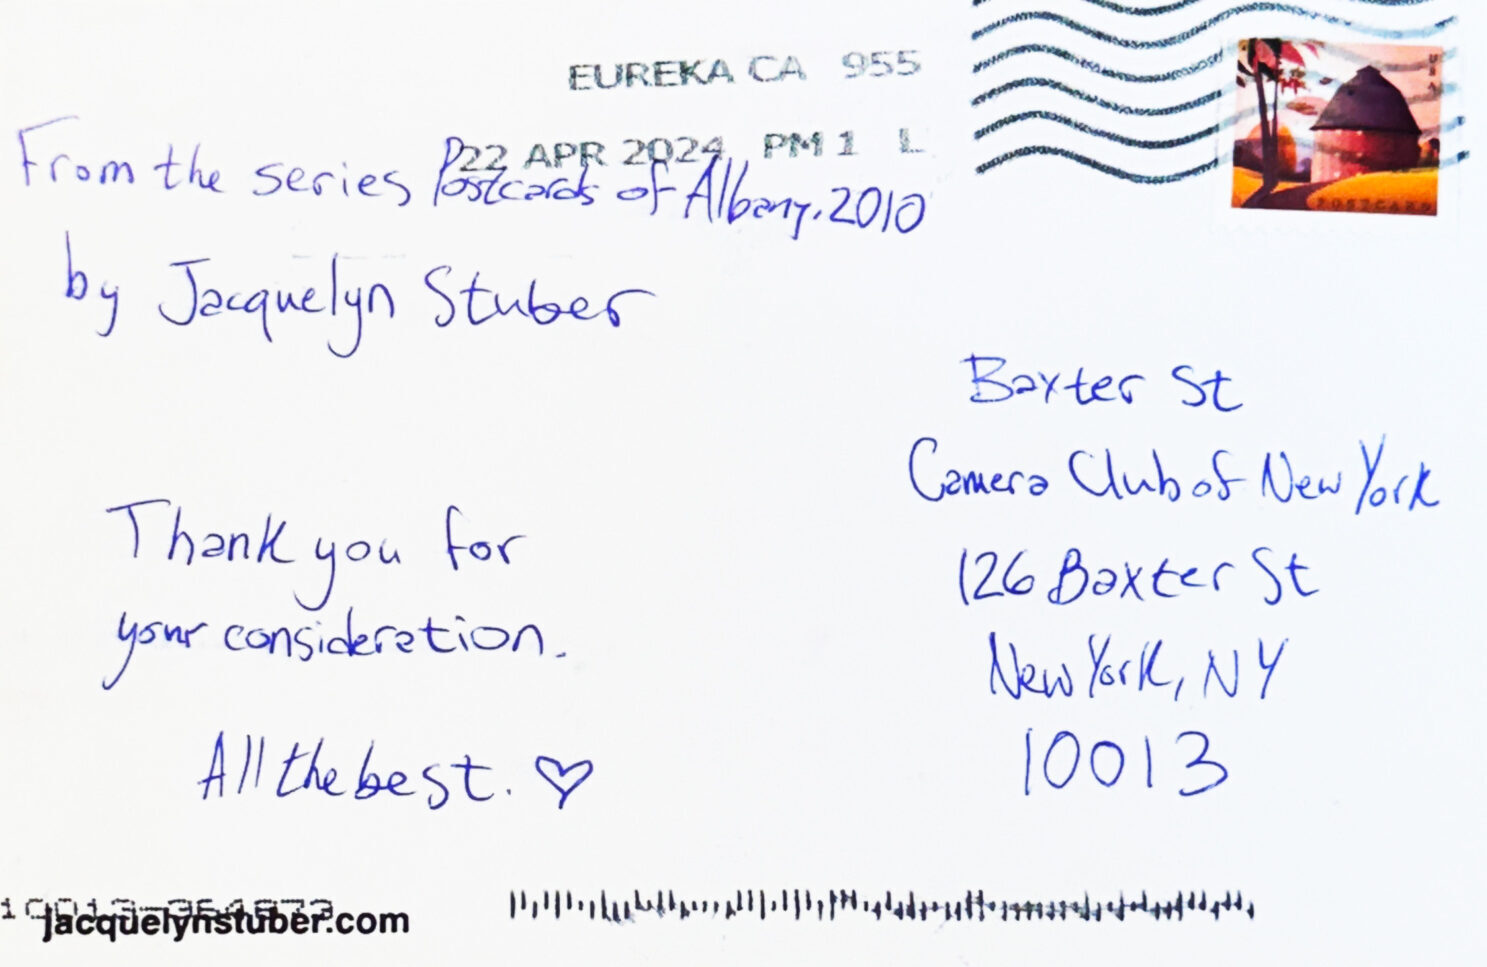 EUREKA CA 955
22 APR 2024 PM 1 L
USA
POSTCARD
From the series Postcards of Albany, 2010
by Jacquelyn Stuber
Thank you for
your consideration.
All the best. ♡
Baxter St
Camera Club of New York
126 Baxter St
New York, NY
10013
jacquelynstuber.com